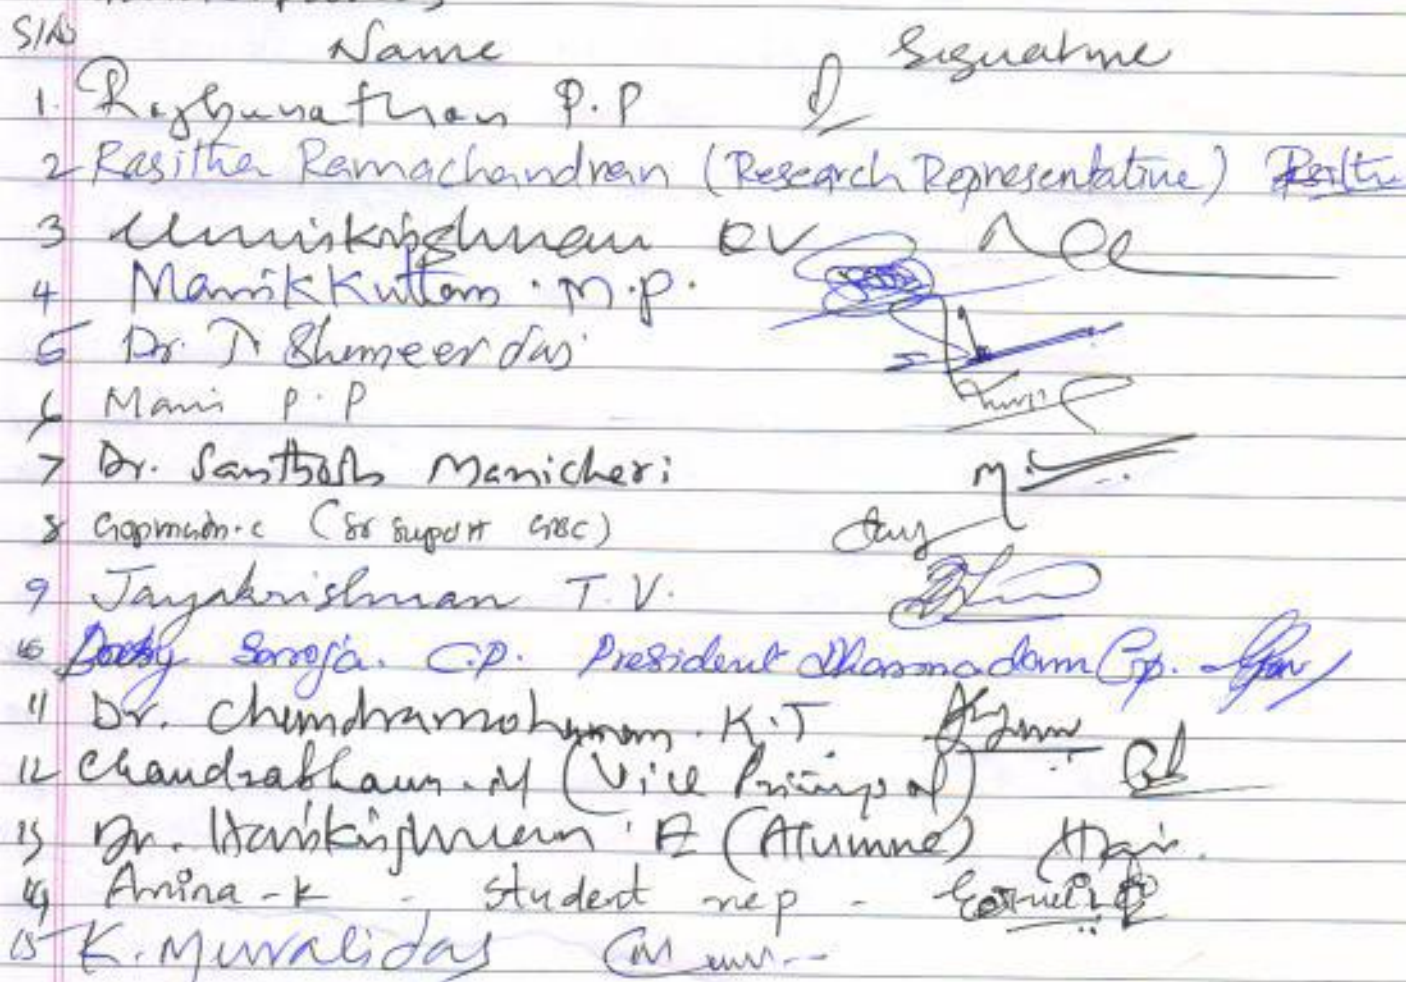 S/No Name Signature
1. Raghunathan P.P
2 Rasitha Ramachandran (Research Representative) Rasitha
3 Unnikrishnan KV
4 Manikkuttan . M.P.
5 Dr. T Shameerdas
6 Mani P.P
7 Dr. Santhosh Manicheri
8 C (Sr Suport GBC)
9 Jayakrishnan T.V.
10 Baby Saroja. C.P. President Dharmadam Gp.
11 Dr. Chandramohanan. K.T
12 Chandrabhanu. M (Vice Principal)
13 Dr. Harikrishnan. E (Alumne) Hari.
14 Amina - K - Student rep -
15 K. Muralidas